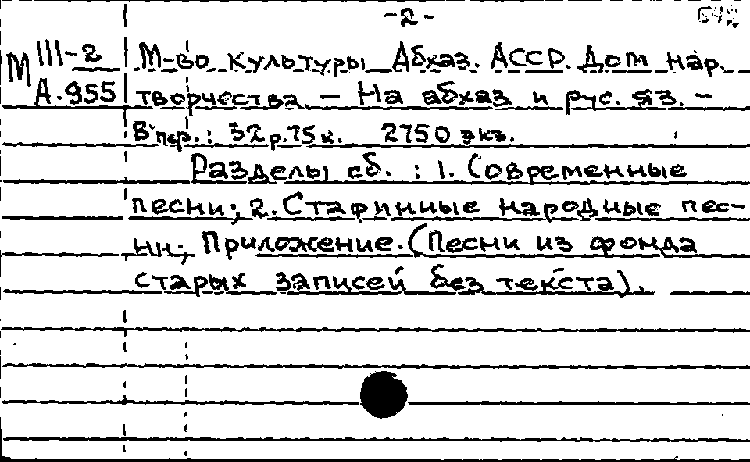 -2-
М III-2
А.955
М-во культуры Абхаз. АССР. Дом нар.
творчества. - На абхаз. и рус. яз. -
В пер.: 32р.75к. 2750 экз.
Разделы сб.: 1. Современные
песни; 2. Старинные народные пес-
ни; Приложение. (Песни из фонда
старых записей без текста).